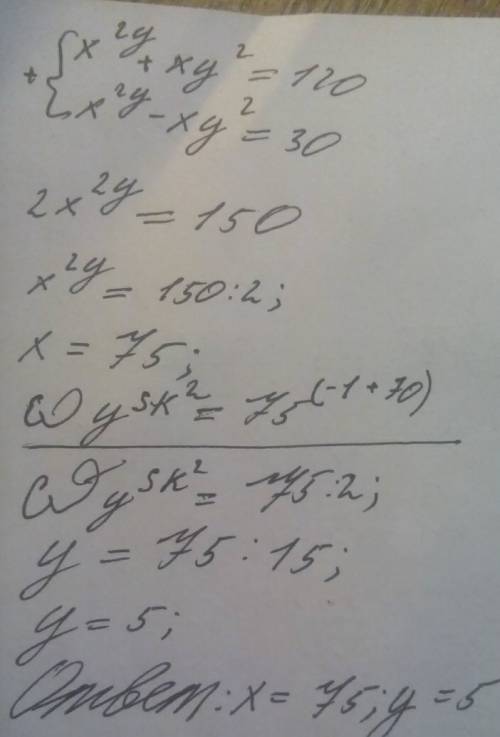 + { x^2y + xy^2 = 120
x^2y - xy^2 = 30
2x^2y = 150
x^2y = 150:2;
x = 75;
y^sk^2 = 75^(-1+70)
y^sk^2 = 75:2;
y = 75:15;
y = 5;
Ответ: x = 75; y = 5